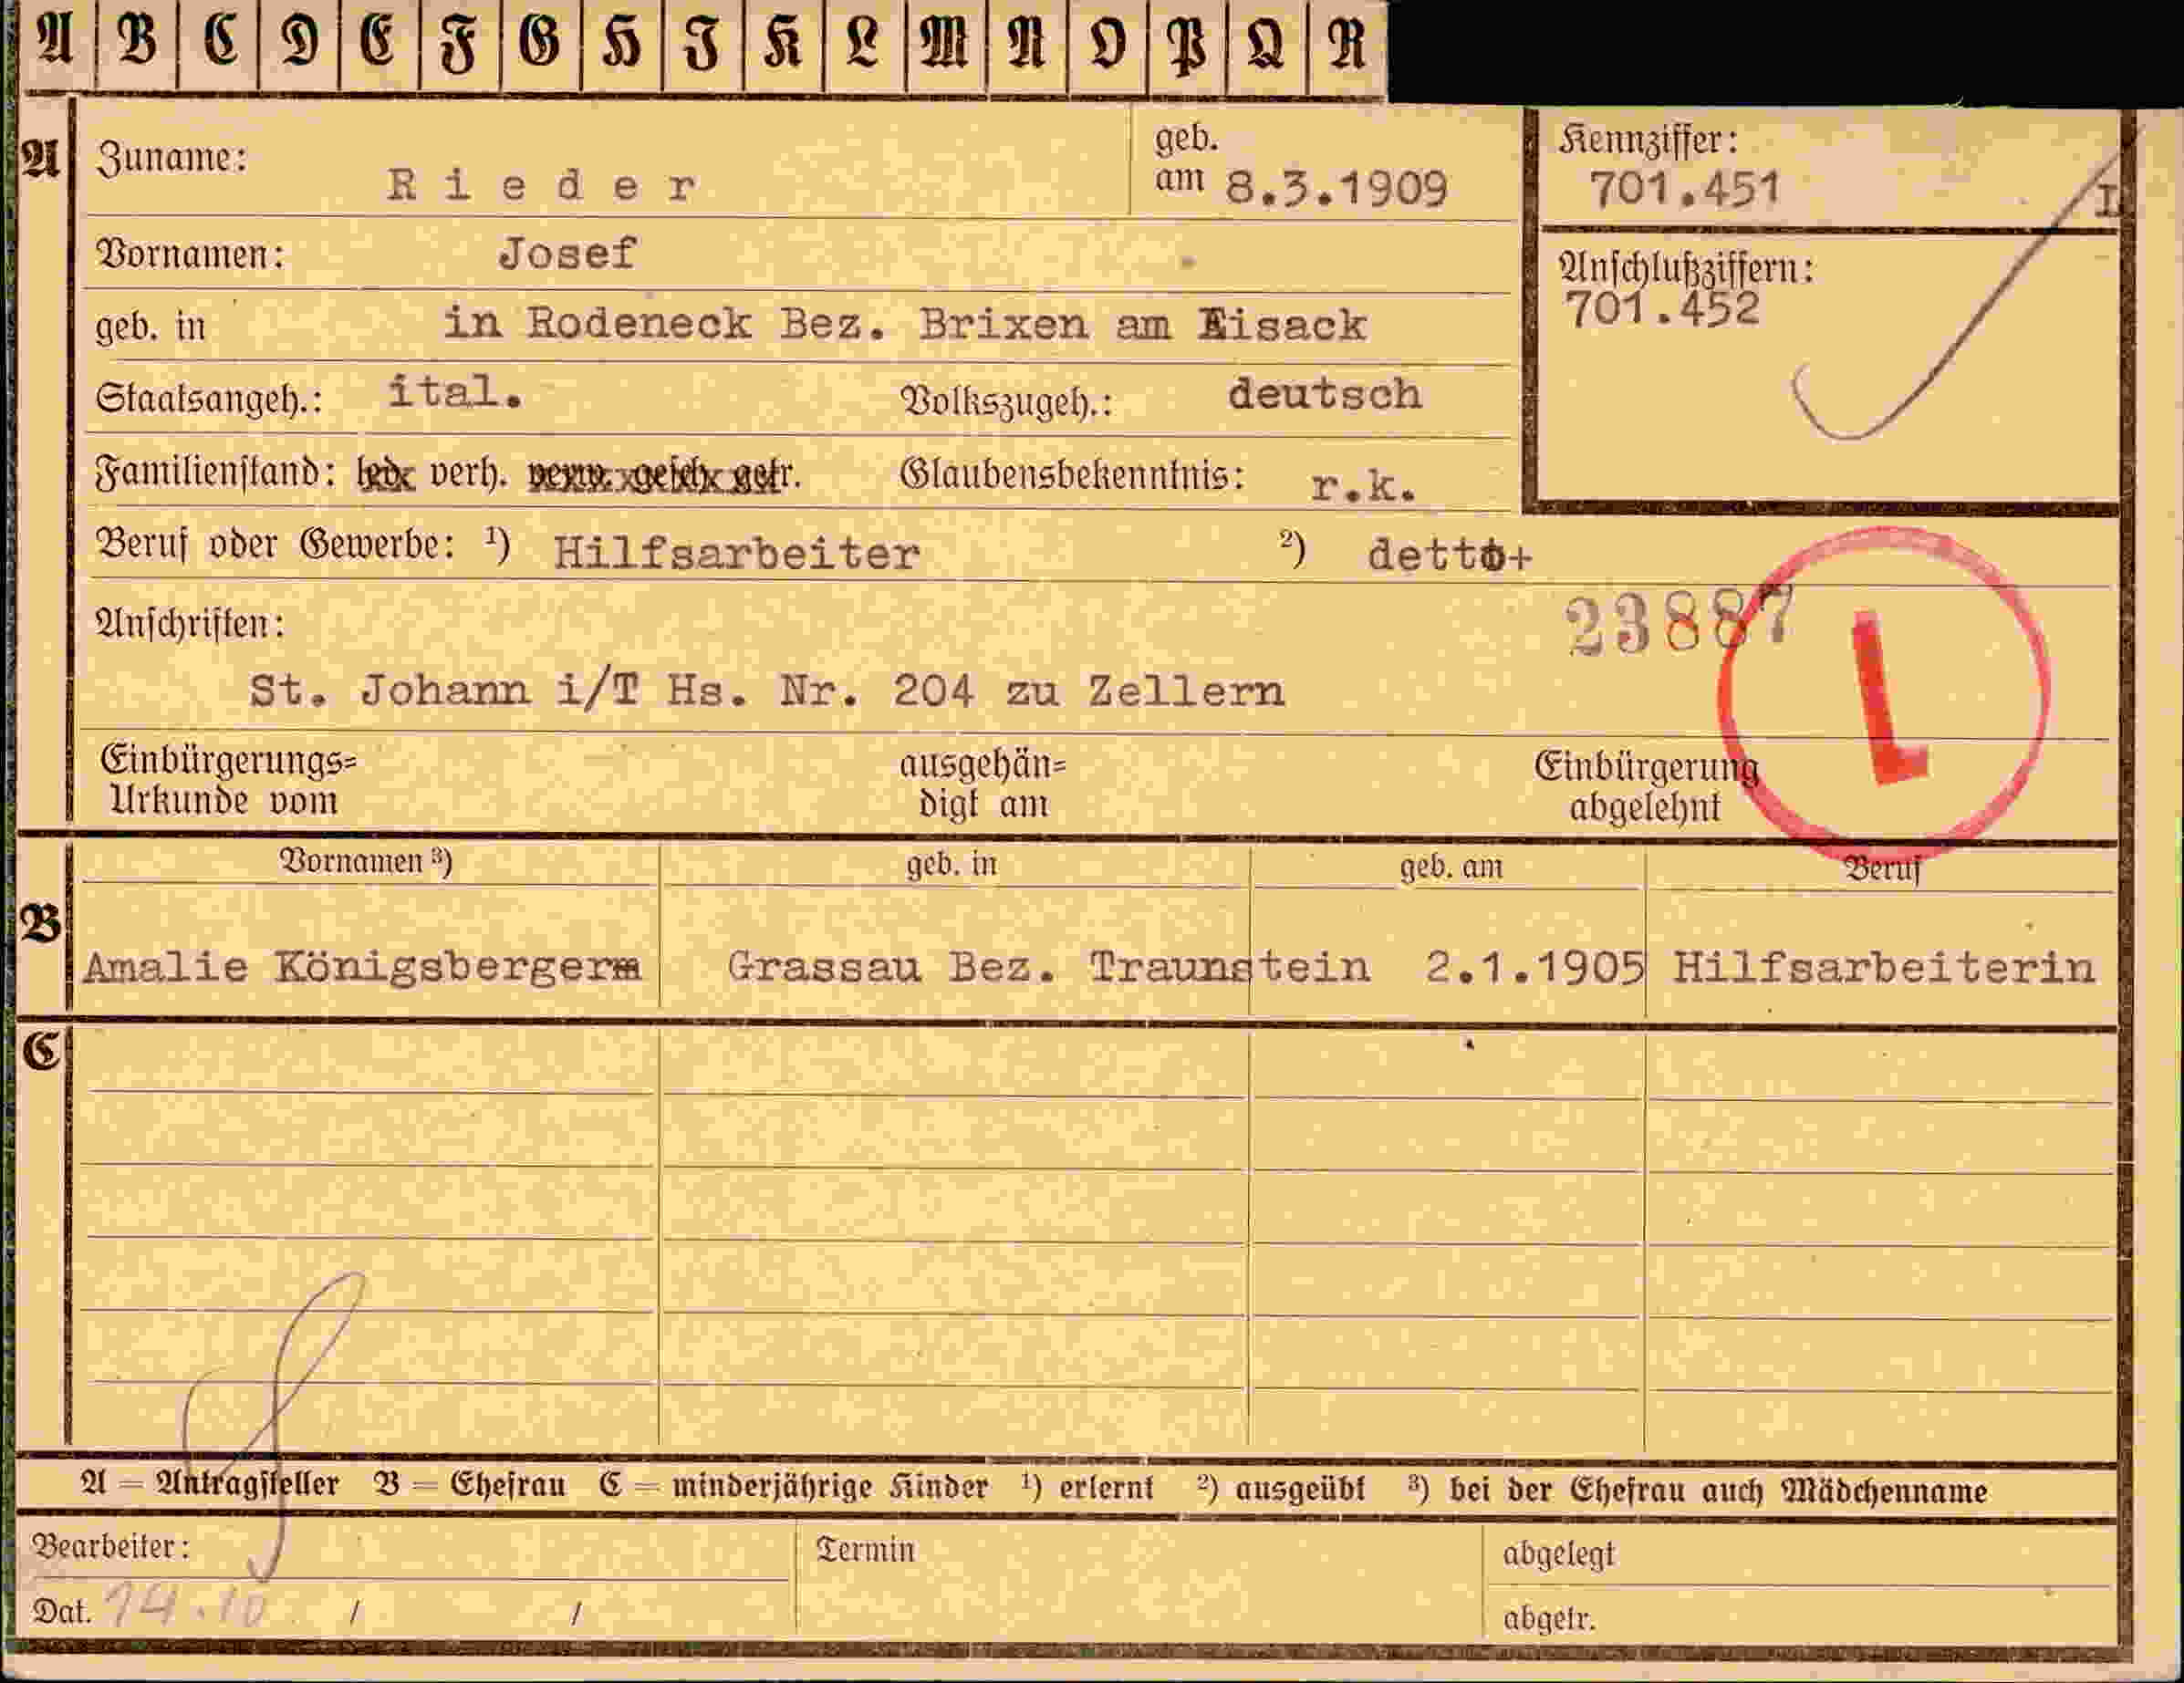 A B C D E F G H I K L M N O P Q R
A
Zuname: Rieder
geb. am 8.3.1909
Kennziffer:
701.451
I
Vornamen: Josef
Anschlußziffern:
701.452
geb. in in Rodeneck Bez. Brixen am Eisack
Staatsangeh.: ital. Volkszugeh.: deutsch
Familienstand: led. verh. verw. gesch. getr. Glaubensbekenntnis: r.k.
Beruf oder Gewerbe: ¹) Hilfsarbeiter ²) detto+
23887
Anschriften:
St. Johann i/T Hs. Nr. 204 zu Zellern
L
Einbürgerungs=
Urkunde vom
ausgehän=
digt am
Einbürgerung
abgelehnt
Vornamen ³) geb. in geb. am Beruf
B
Amalie Königsberger Grassau Bez. Traunstein 2.1.1905 Hilfsarbeiterin
C
A = Antragsteller B = Ehefrau C = minderjährige Kinder ¹) erlernt ²) ausgeübt ³) bei der Ehefrau auch Mädchenname
Bearbeiter: Termin abgelegt
Dat. 14.10 / / abgetr.